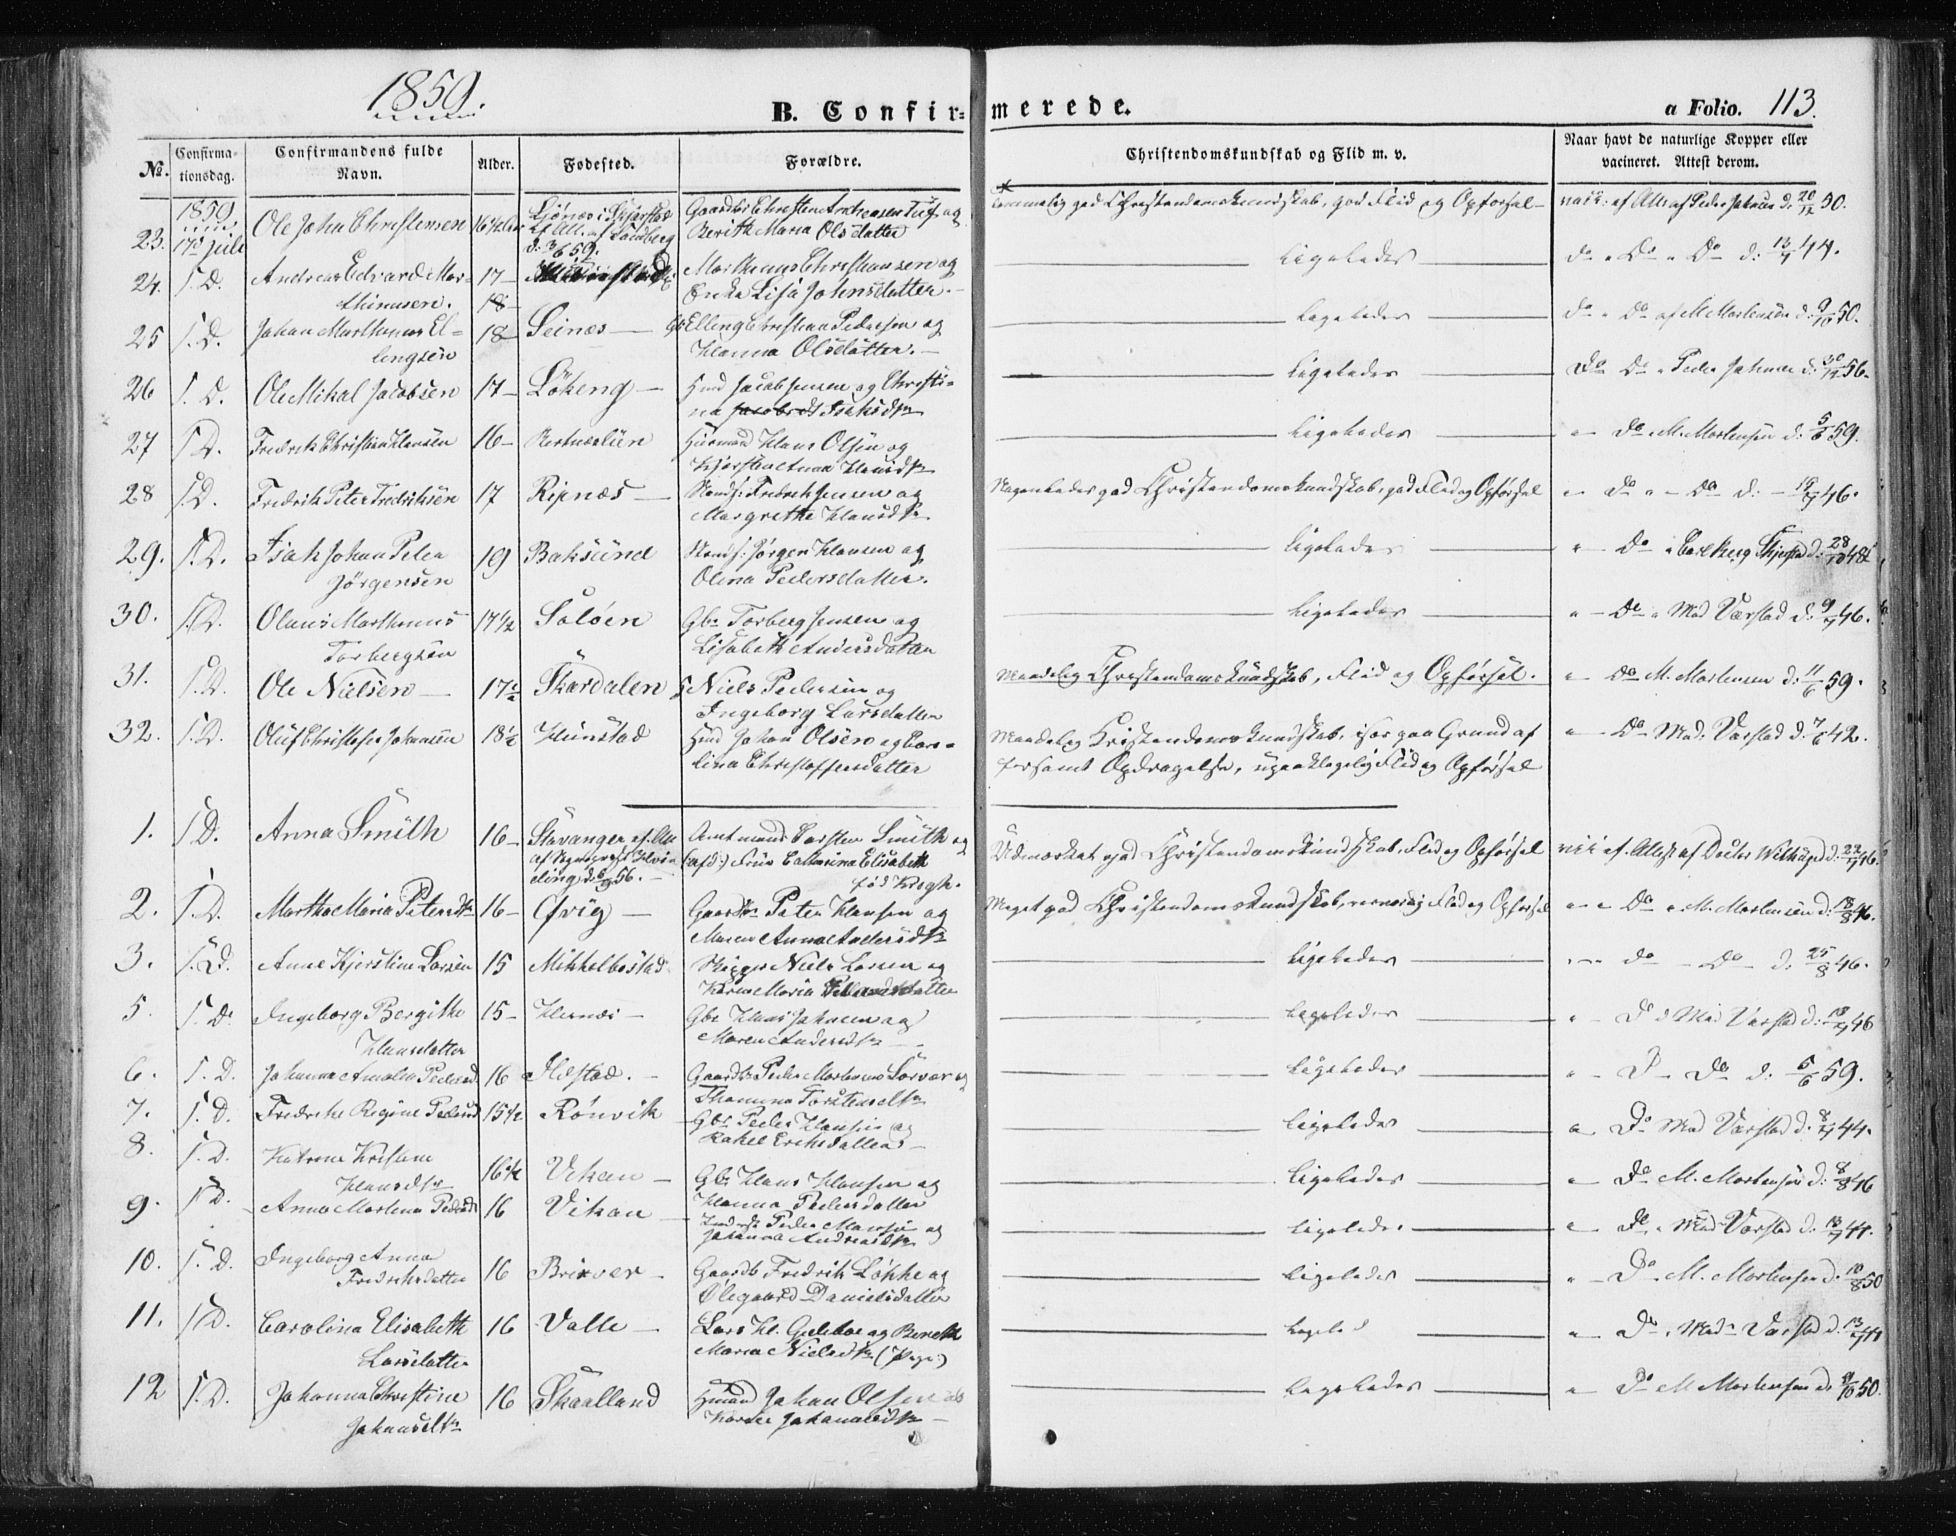 1859.
B. Confir=
merede.
a Folio. 113.
No.
Confirma-
tionsdag.
Confirmandens fulde
Navn.
Alder.
Fødested.
Forældre.
Christendomskundskab og Flid m. v.
Naar havt de naturlige Kopper eller
vacineret. Attest derom.
1859.
23. 17de juli Ole Johan Christensen 16½ Aar
Gaardbr Christen Andreasen Tuf og
Berith Maria Olsdatter
god Christendomskundskab, god Flid og Opførsel
vacc. af Att. af Peder Johnsen d. 20/12 50.
24. S. D. Andreas Edvard Mar-
thinusen. 17
Marthinus Christiansen og
Lisa Johnsdatter.
Ligeledes
Do Do Do d. 13/7 44.
25 S. D. Johan Marthinus El-
lingsen 18 Seines Gbr Elling Christian Pedersen og
Hanna Olsdatter.
Ligeledes
Do Do af M. Mortensen d. 9/10 50.
26 S. D. Ole Mikal Jacobsen 17 Løkeng Hmd Jacob Jensen og Christi-
na Isaksdtr
Ligeledes
Do Do Peder Johnsen d. 30/12 56.
27 S. D. Fredrik Christian Hansen 16 Husmand Hans Olsen og
Kjerstina Anna Hansdtr
Ligeledes
Do M. Mortensen d. 5/6 59.
28 S. D. Fredrik Peter Fredriksen 17 Ripnæs Fredrik Jensen og
Margrethe Hansdtr
Nogenledes god Christendomskundskab, god Flid og Opførsel
Do Do d. 19/7 46.
29. S. D. Isak Johan Peter
Jørgensen 19 Baksund Jørgen Hansen og
Olina Pedersdatter.
Ligeledes
Do d. 28/10 48
30. S. D. Olaus Marthinus
Torbergsen 17½ Soløen Gbr Torberg Jensen og
Lisabeth Andersdatter
Ligeledes
Do Mad Varstad d. 9/7 46.
31. S. D. Ole Nielsen 17½ Skardalen Niels Pedersen og
Ingeborg Larsdatter
Maadelig Christendomskundskab, Flid og Opførsel.
Do M. Mortensen d. 11/6 59.
32. S. D. Oluf Christofer Johansen 18½ Hunstad Hmd Johan Olsen og Caro-
lina Christoffersdatter
Maadelig Kristendomskundskab, især paa Grund af
forsømt Opdragelse, upaaklagelig Flid og Opførsel
Do Mad. Varstad d. 7/6 42.
1. S. D. Anna Smith 16 Stavanger ef. Att
d. 6/9 56.
Amtmand Carsten Smith og
(afd:) Frue Catharina Elisabeth
fød Krogh.
Udmærket god Christendomskundskab, Flid og Opførsel
Attest af Doctor d. 22/7 46.
2. S. D. Martha Maria Petersdtr 16 Gaardbr Peter Hansen og
Maren Anna Andersdtr
Meget god Christendomskundskab, Flid og Opførsel
Do M. Mortensen d. 18/8 46.
3. S. D. Anne Kjerstine Larsen 15 Mikkelbostad Skipper Niels Larsen og
Karen Maria
Ligeledes
Do Do d. 25/8 46.
5. S. D. Ingeborg Bergithe
Hansdatter 15 Hernæs Gbr Hans Johnsen og
Maren Andersdtr
Ligeledes
Do Mad Varstad d. 18/7 46
6. S. D. Johanna Amalia Pedersd 16 Ilstad. Gaardbr Peder Mortensen Sørvær og
Thomina Torstensdtr
Ligeledes
Do d. 6/6 59.
7. S. D. Fredrikke Regine Pedersd 15½ Rønvik Gbr Peder Hansen og
Rakel Eriksdatter
Ligeledes
Do Mad Varstad d. 8/7 44.
8. S. D. Katrine Kristine
Hansdtr 16½ Vikan Gbr Hans Hansen og
Hanna Pedersdatter
Ligeledes
Do M. Mortensen d. 8/8 46
9. S. D. Anna Martena Pedersd 16 Vikan Peder Monsen og
Johanna Andreasdtr
Ligeledes
Do Mad Varstad d. 13/7 44.
10. S. D. Ingeborg Anna
Fredriksdatter 16 Brixver Gaardb Fredrik Løkke og
Olegaard Danielsdatter
Ligeledes
Do M. Mortensen d. 10/8 50
11. S. D. Carolina Elisabeth
Larsdatter 16 Valle Lars H. og Bereth
Maria Nielsdtr
Ligeled
Do Mad Varstad d. 13/7 44
12 S. D. Johanna Christine
Johansdtr 16 Skaalland Hmand Johan Olsen og
Karen Johannesdtr
Ligeledes
Do M Mortensen d. 9/10 50.